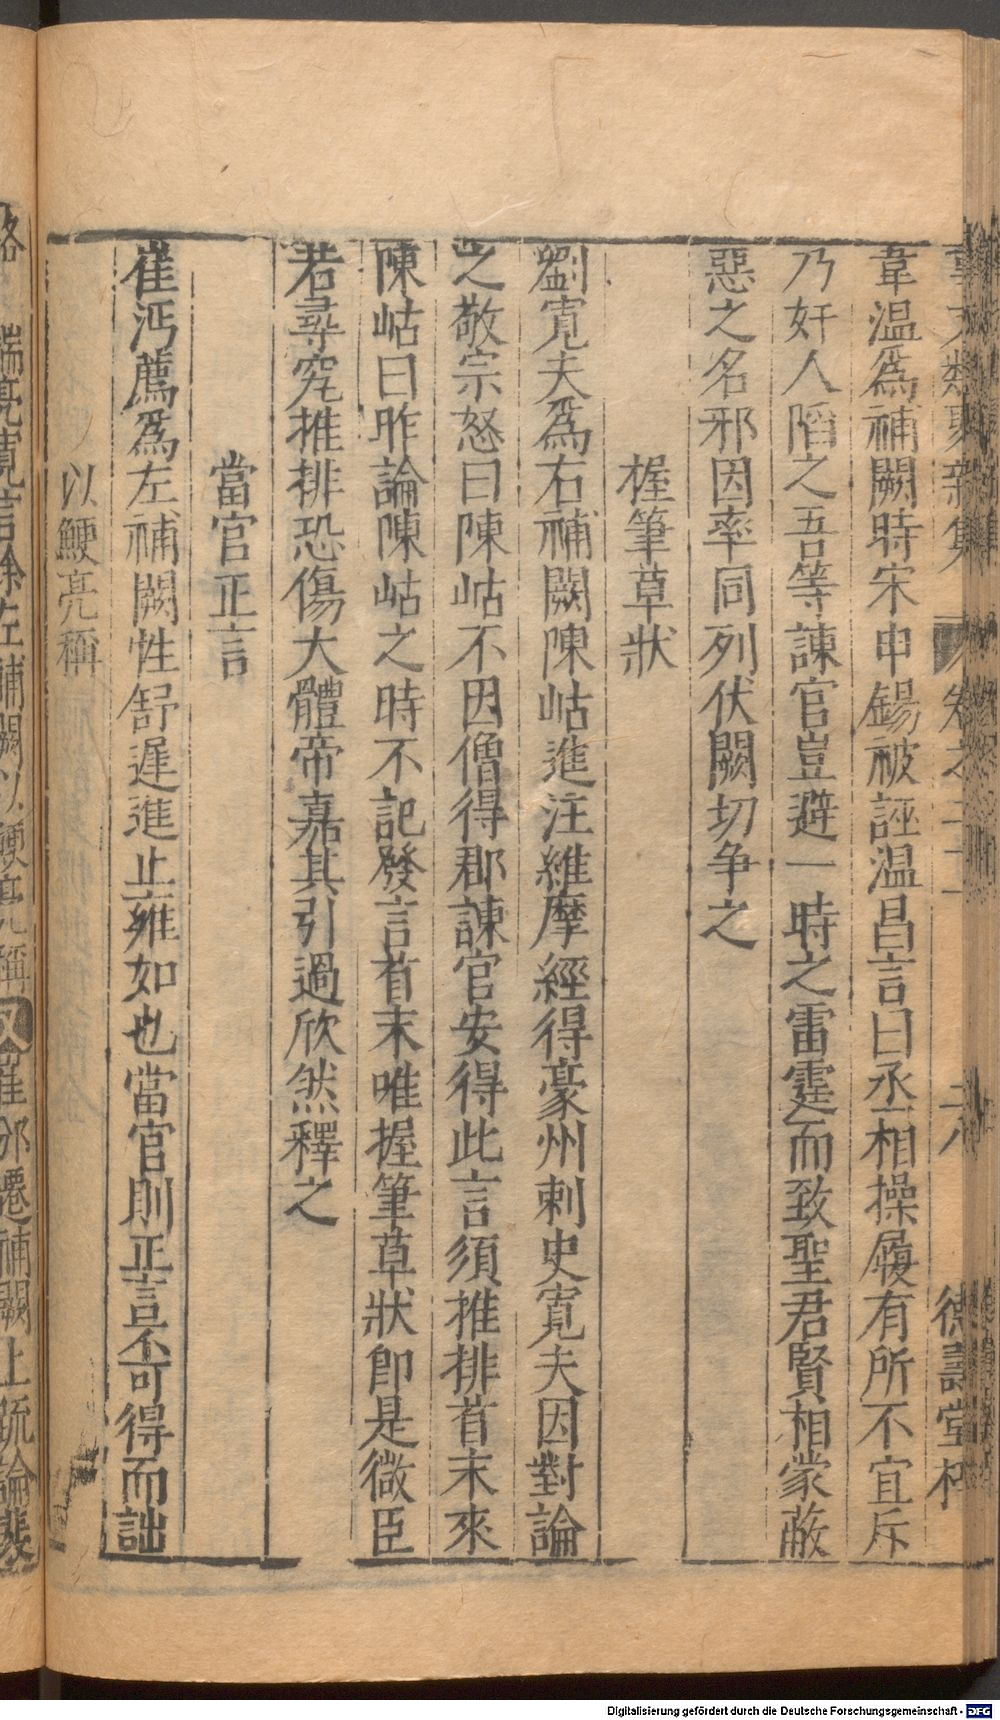 事文類聚新集 卷之二十一 二八 德壽堂梓
韋溫爲補闕時宋申錫被誣溫昌言曰丞相操履有所不宜斥
乃奸人陷之吾等諫官豈避一時之雷霆而致聖君賢相蒙蔽
惡之名邪因率同列伏闕切争之
握筆草狀
劉寬夫爲右補闕陳岵進注維摩經得豪州刺史寬夫因對論
之敬宗怒曰陳岵不因僧得郡諫官安得此言須推排首末來
陳岵曰昨論陳岵之時不記發言首末唯握筆草狀即是微臣
若尋究推排恐傷大體帝嘉其引過欣然釋之
當官正言
崔沔薦爲左補闕性舒遲進止雍如也當官則正言不可得而詘
以鯁亮稱
端亮寬言除左補闕以鯁亮稱又崔邠遷補闕上疏論裴
Digitalisierung gefördert durch die Deutsche Forschungsgemeinschaft - DFG